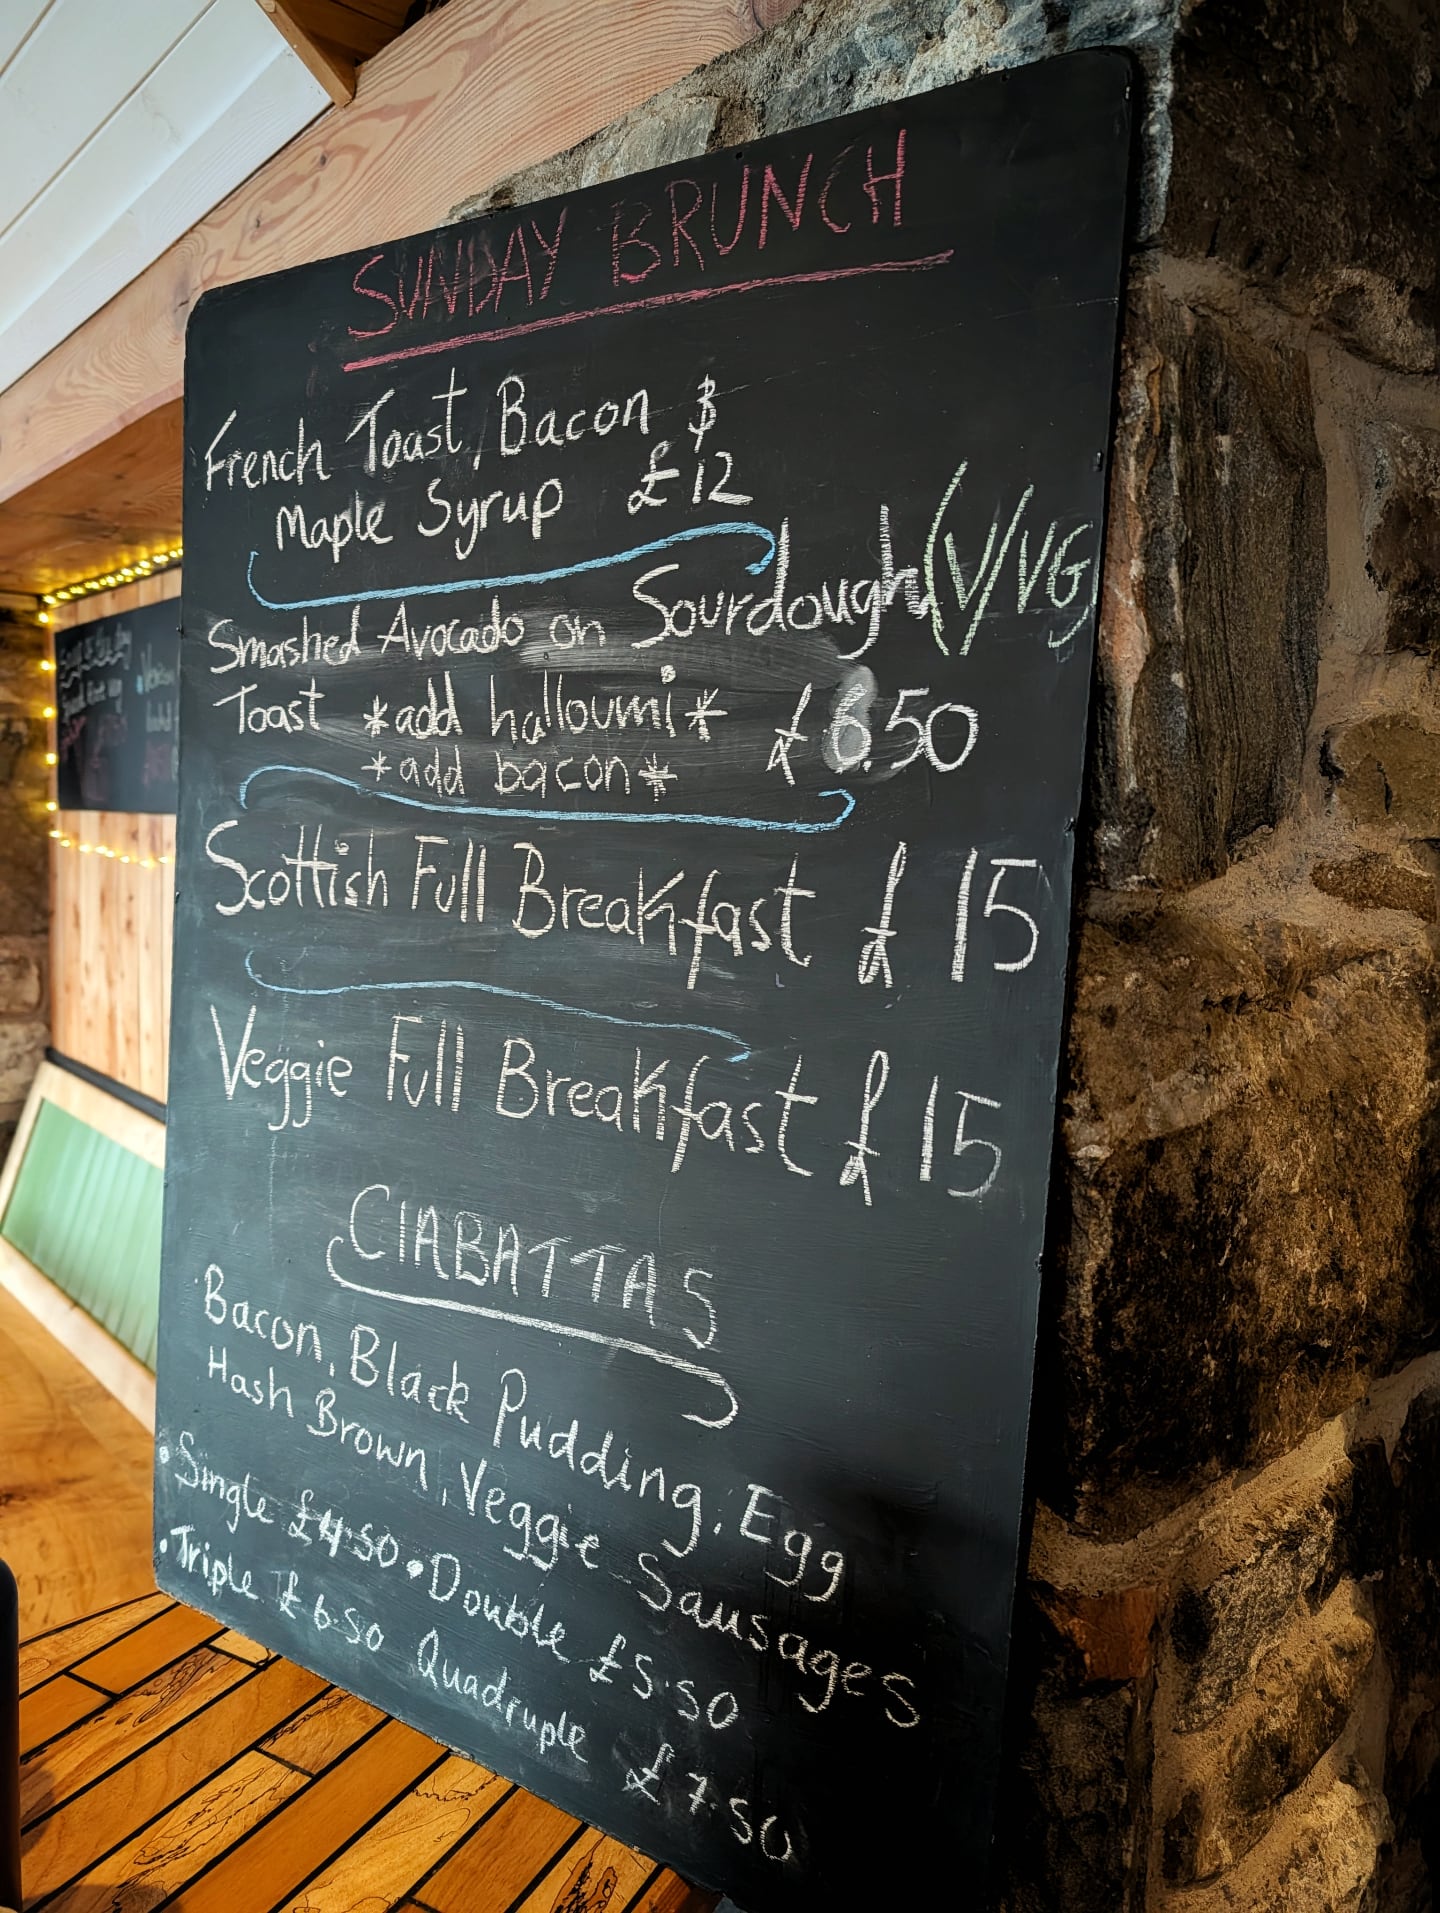 SUNDAY BRUNCH
French Toast, Bacon &
Maple Syrup £12
Smashed Avocado on Sourdough (V/VG)
Toast *add halloumi* £8.50
*add bacon*
Scottish Full Breakfast £15
Veggie Full Breakfast £15
CIABATTAS
Bacon, Black Pudding, Egg
Hash Brown, Veggie Sausages
• Single £4.50 • Double £5.50
• Triple £6.50 Quadruple £7.50